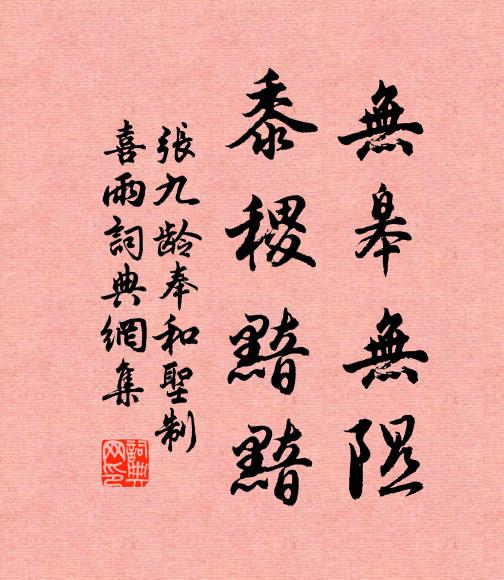 無皋無隰
黍稷黯黯
張九龄奉和聖制
喜雨詞典網集
詞典
网印